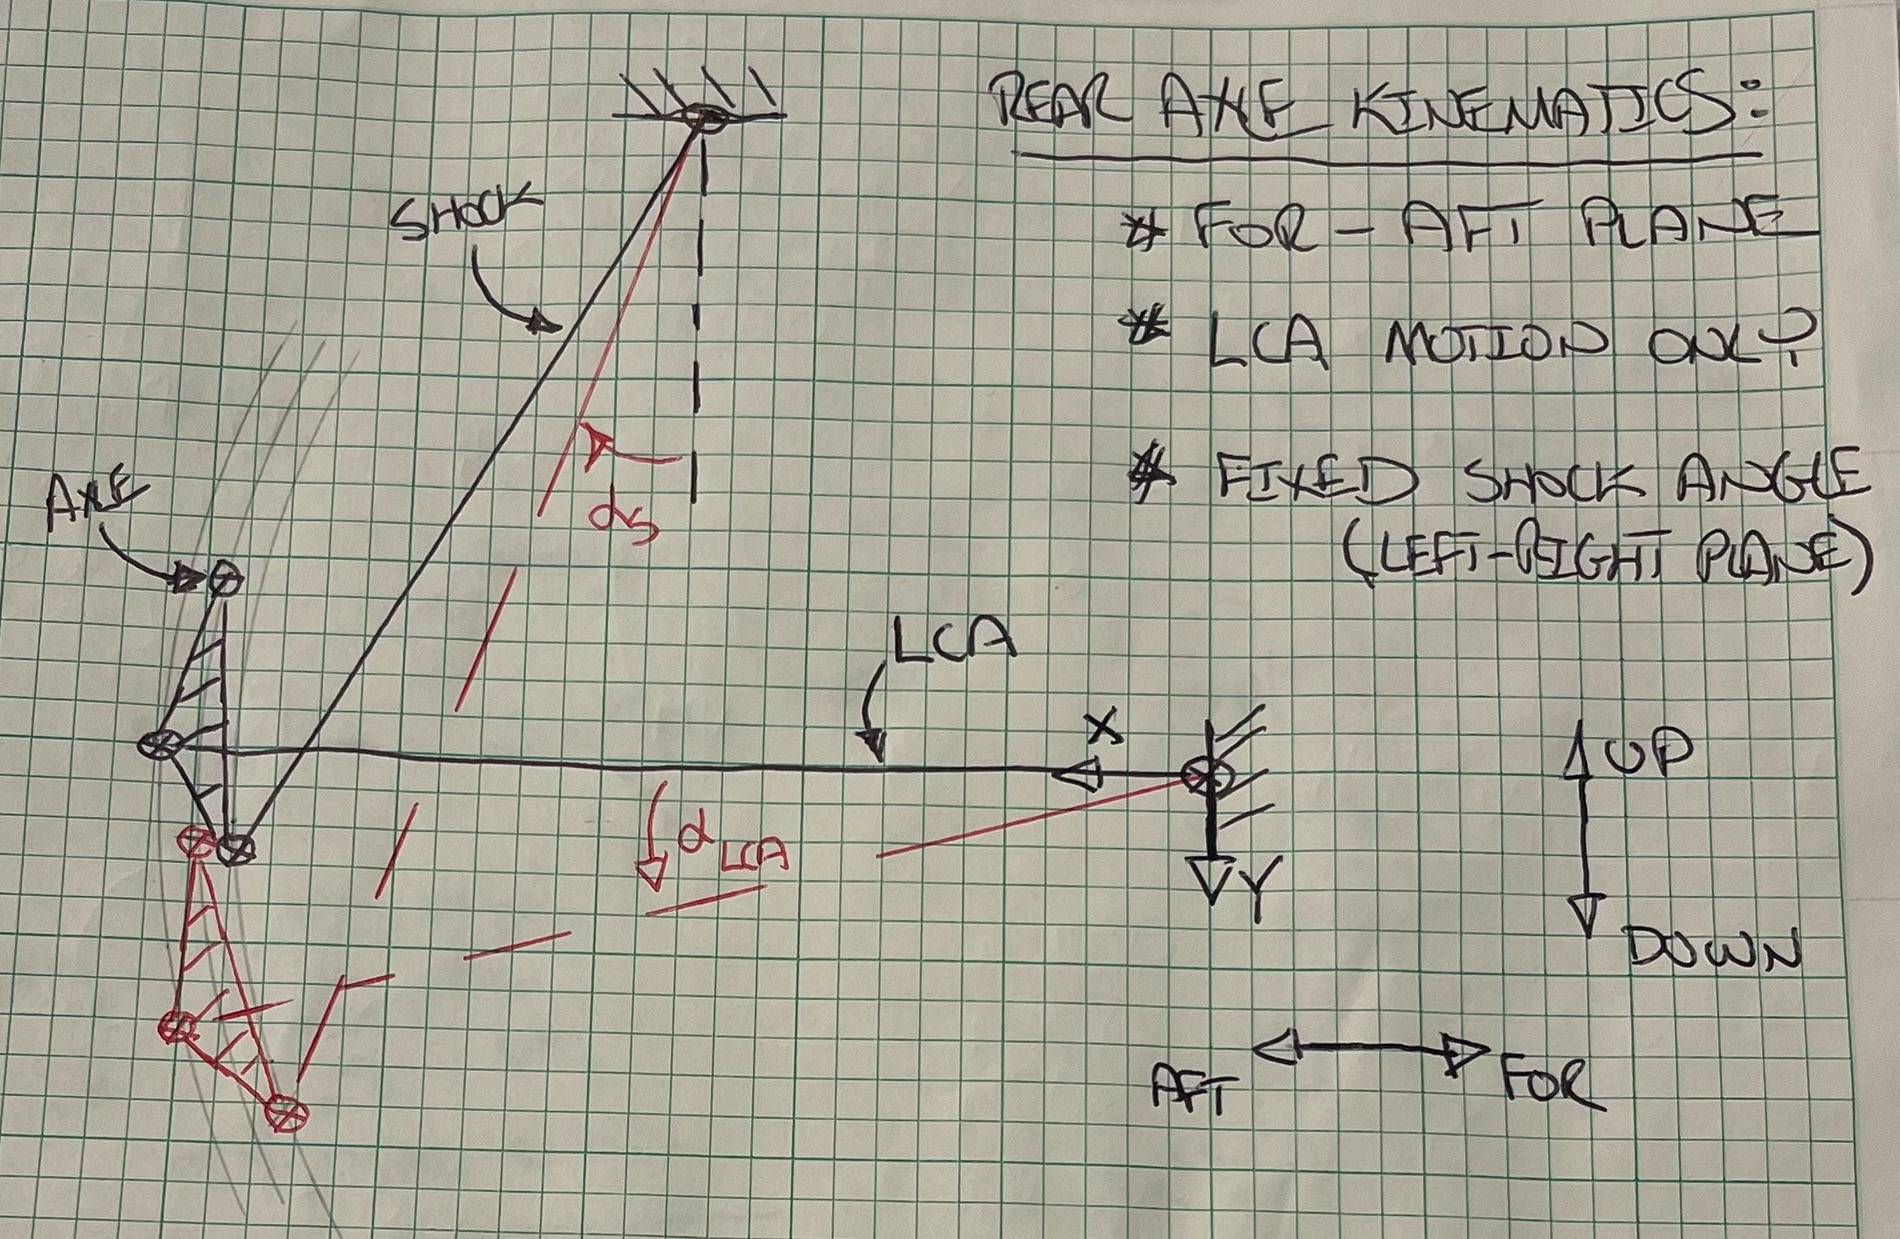 REAR AXLE KINEMATICS:
* FOR-AFT PLANE
SHOCK
* LCA MOTION ONLY
* FIXED SHOCK ANGLE
(LEFT-RIGHT PLANE)
AXLE
αs
LCA
X
UP
αLCA
Y
DOWN
AFT
FOR